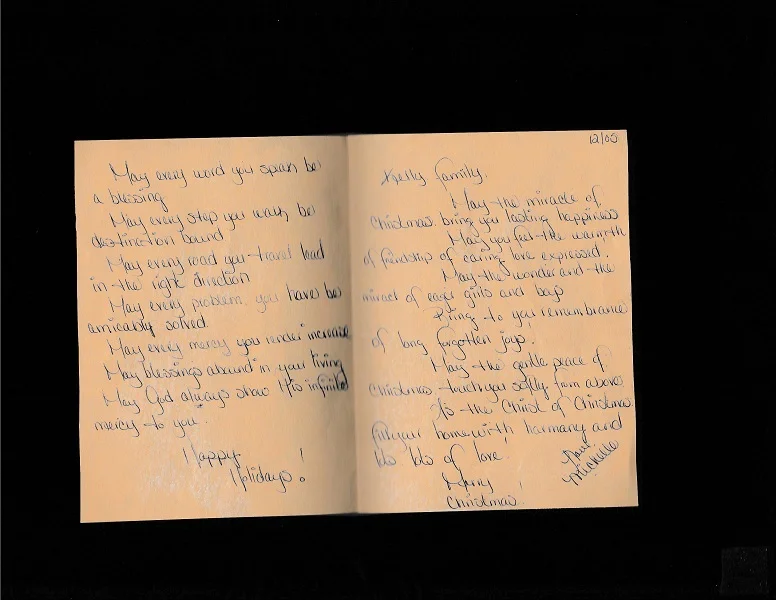 May every word you speak be
a blessing
May every step you walk be
destination bound
May every road you travel lead
in the right direction
May every problem you have be
amicably solved
May every mercy you render increase
May blessings abound in your living
May God always show His infinite
mercy to you!
Happy
Holidays!
12/03
Kelly family,
May the miracle of
Christmas, bring you lasting happiness
May you feel the warmth
of friendship of caring love expressed.
May the wonder and the
miracl of eager girls and boys
Bring to you remembrance
of long forgotten joys!
May the gentle peace of
Christmas touch you softly from above
As the Christ of Christmas
fill your home with harmony and
lots lots of love!
Merry
Christmas!
Michelle